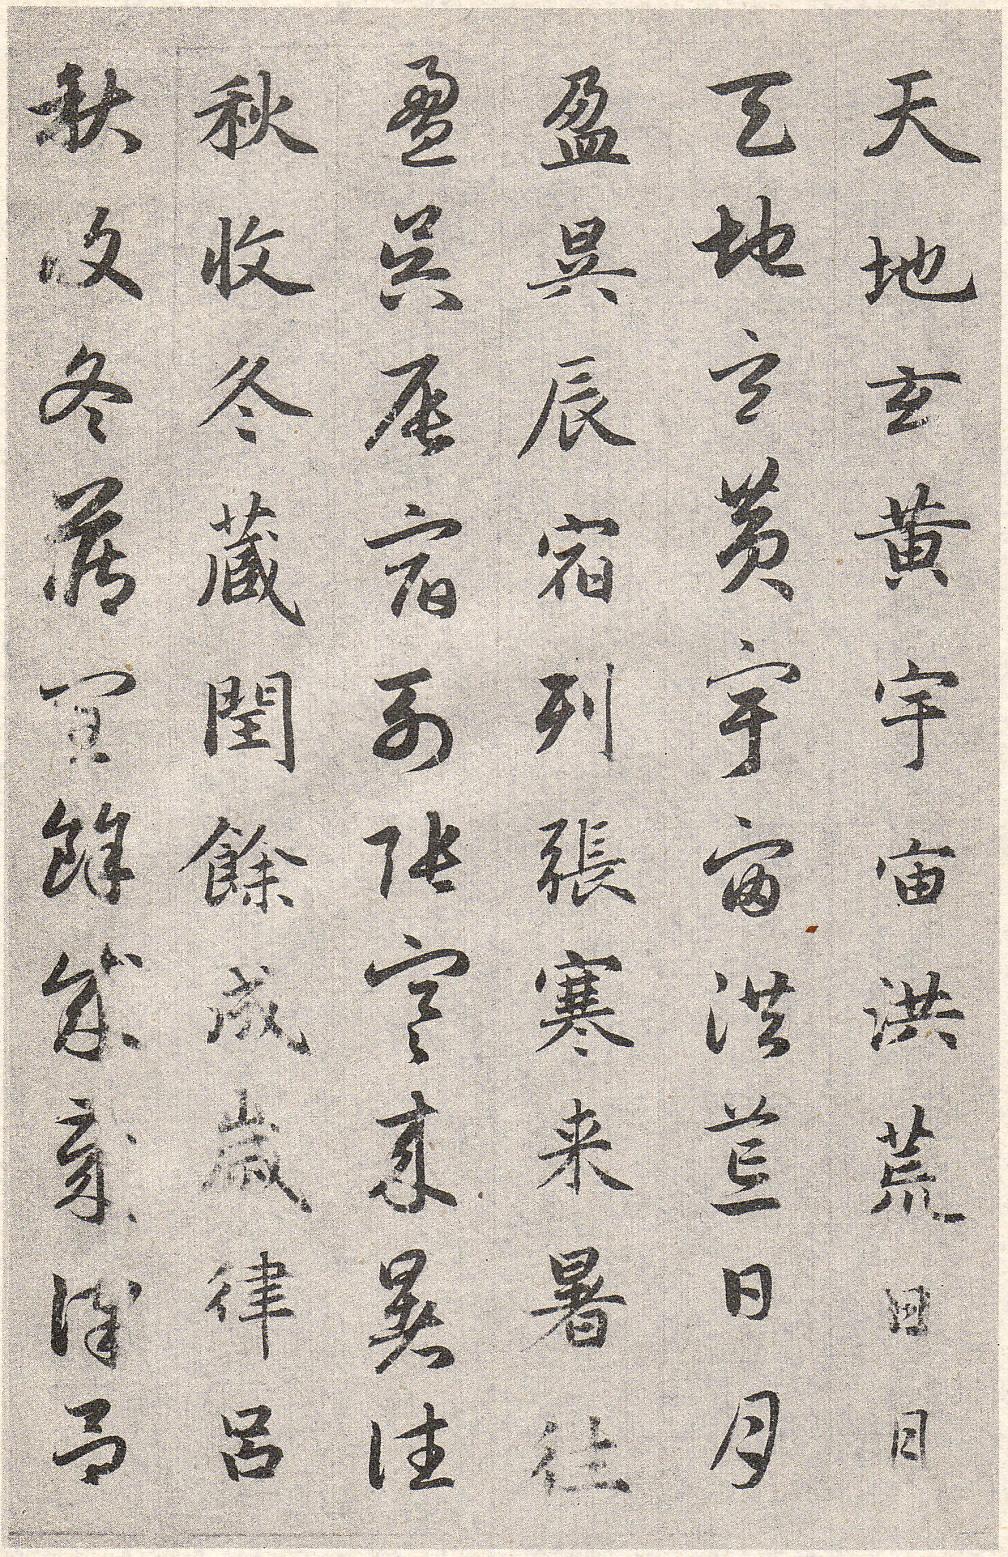 天地玄黄宇宙洪荒日月
天地玄黄宇宙洪荒日月
盈昃辰宿列張寒来暑往
盈昃辰宿列張寒来暑往
秋收冬藏閏餘成歳律呂
秋收冬藏閏餘成歳律呂